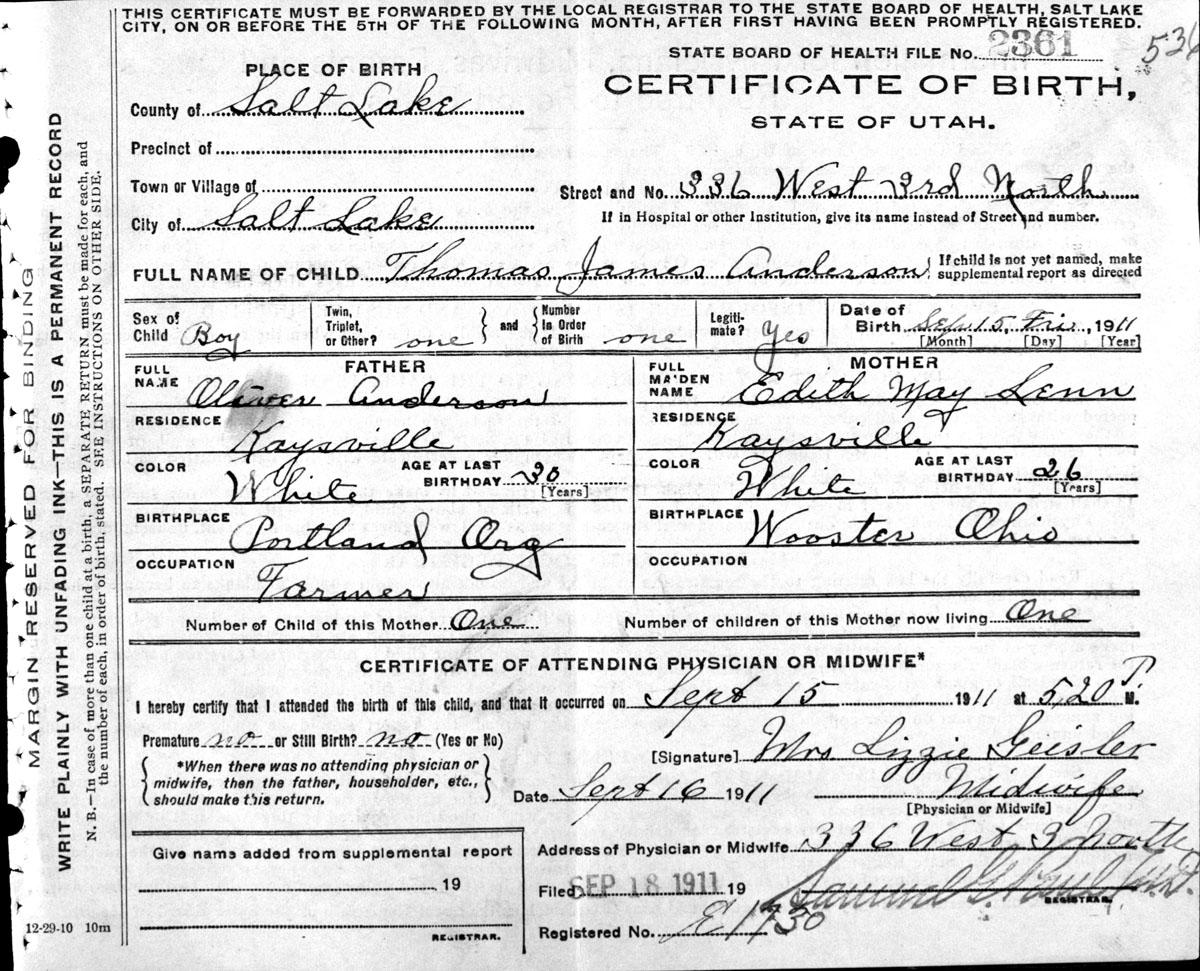 THIS CERTIFICATE MUST BE FORWARDED BY THE LOCAL REGISTRAR TO THE STATE BOARD OF HEALTH, SALT LAKE
CITY, ON OR BEFORE THE 5TH OF THE FOLLOWING MONTH, AFTER FIRST HAVING BEEN PROMPTLY REGISTERED.
STATE BOARD OF HEALTH FILE No. 2361
536
CERTIFICATE OF BIRTH,
STATE OF UTAH.
PLACE OF BIRTH
County of Salt Lake
Precinct of
Town or Village of
City of Salt Lake
Street and No. 336 West 3rd North
If in Hospital or other Institution, give its name instead of Street and number.
FULL NAME OF CHILD Thomas James Anderson
If child is not yet named, make
supplemental report as directed
Sex of
Child Boy
Twin,
Triplet,
or Other? one
and
Number
In Order
of Birth one
Legiti-
mate? Yes
Date of
Birth Sep 15 Fri, 1911
[Month] [Day] [Year]
FATHER
FULL
NAME Oliver Anderson
RESIDENCE
Kaysville
COLOR
White
AGE AT LAST
BIRTHDAY 30
[Years]
BIRTHPLACE
Portland Org
OCCUPATION
Farmer
MOTHER
FULL
MAIDEN
NAME Edith May Lenn
RESIDENCE
Kaysville
COLOR
White
AGE AT LAST
BIRTHDAY 26
[Years]
BIRTHPLACE
Wooster Ohio
OCCUPATION
Number of Child of this Mother One
Number of children of this Mother now living One
CERTIFICATE OF ATTENDING PHYSICIAN OR MIDWIFE*
I hereby certify that I attended the birth of this child, and that it occurred on Sept 15 1911 at 5,20 P. M.
Premature no or Still Birth? no (Yes or No)
*When there was no attending physician or
midwife, then the father, householder, etc.,
should make this return.
[Signature] Mrs Lizzie Geisler
Date Sept 16 1911
Midwife
[Physician or Midwife]
Address of Physician or Midwife 336 West 3 North
Give name added from supplemental report
19
REGISTRAR.
Filed SEP 18 1911 19
Samuel G. Paul
REGISTRAR.
Registered No. E 1730
12-29-10 10m
MARGIN RESERVED FOR BINDING
WRITE PLAINLY WITH UNFADING INK—THIS IS A PERMANENT RECORD
N. B.—In case of more than one child at a birth, a SEPARATE RETURN must be made for each, and
the number of each, in order of birth, stated. SEE INSTRUCTIONS ON OTHER SIDE.